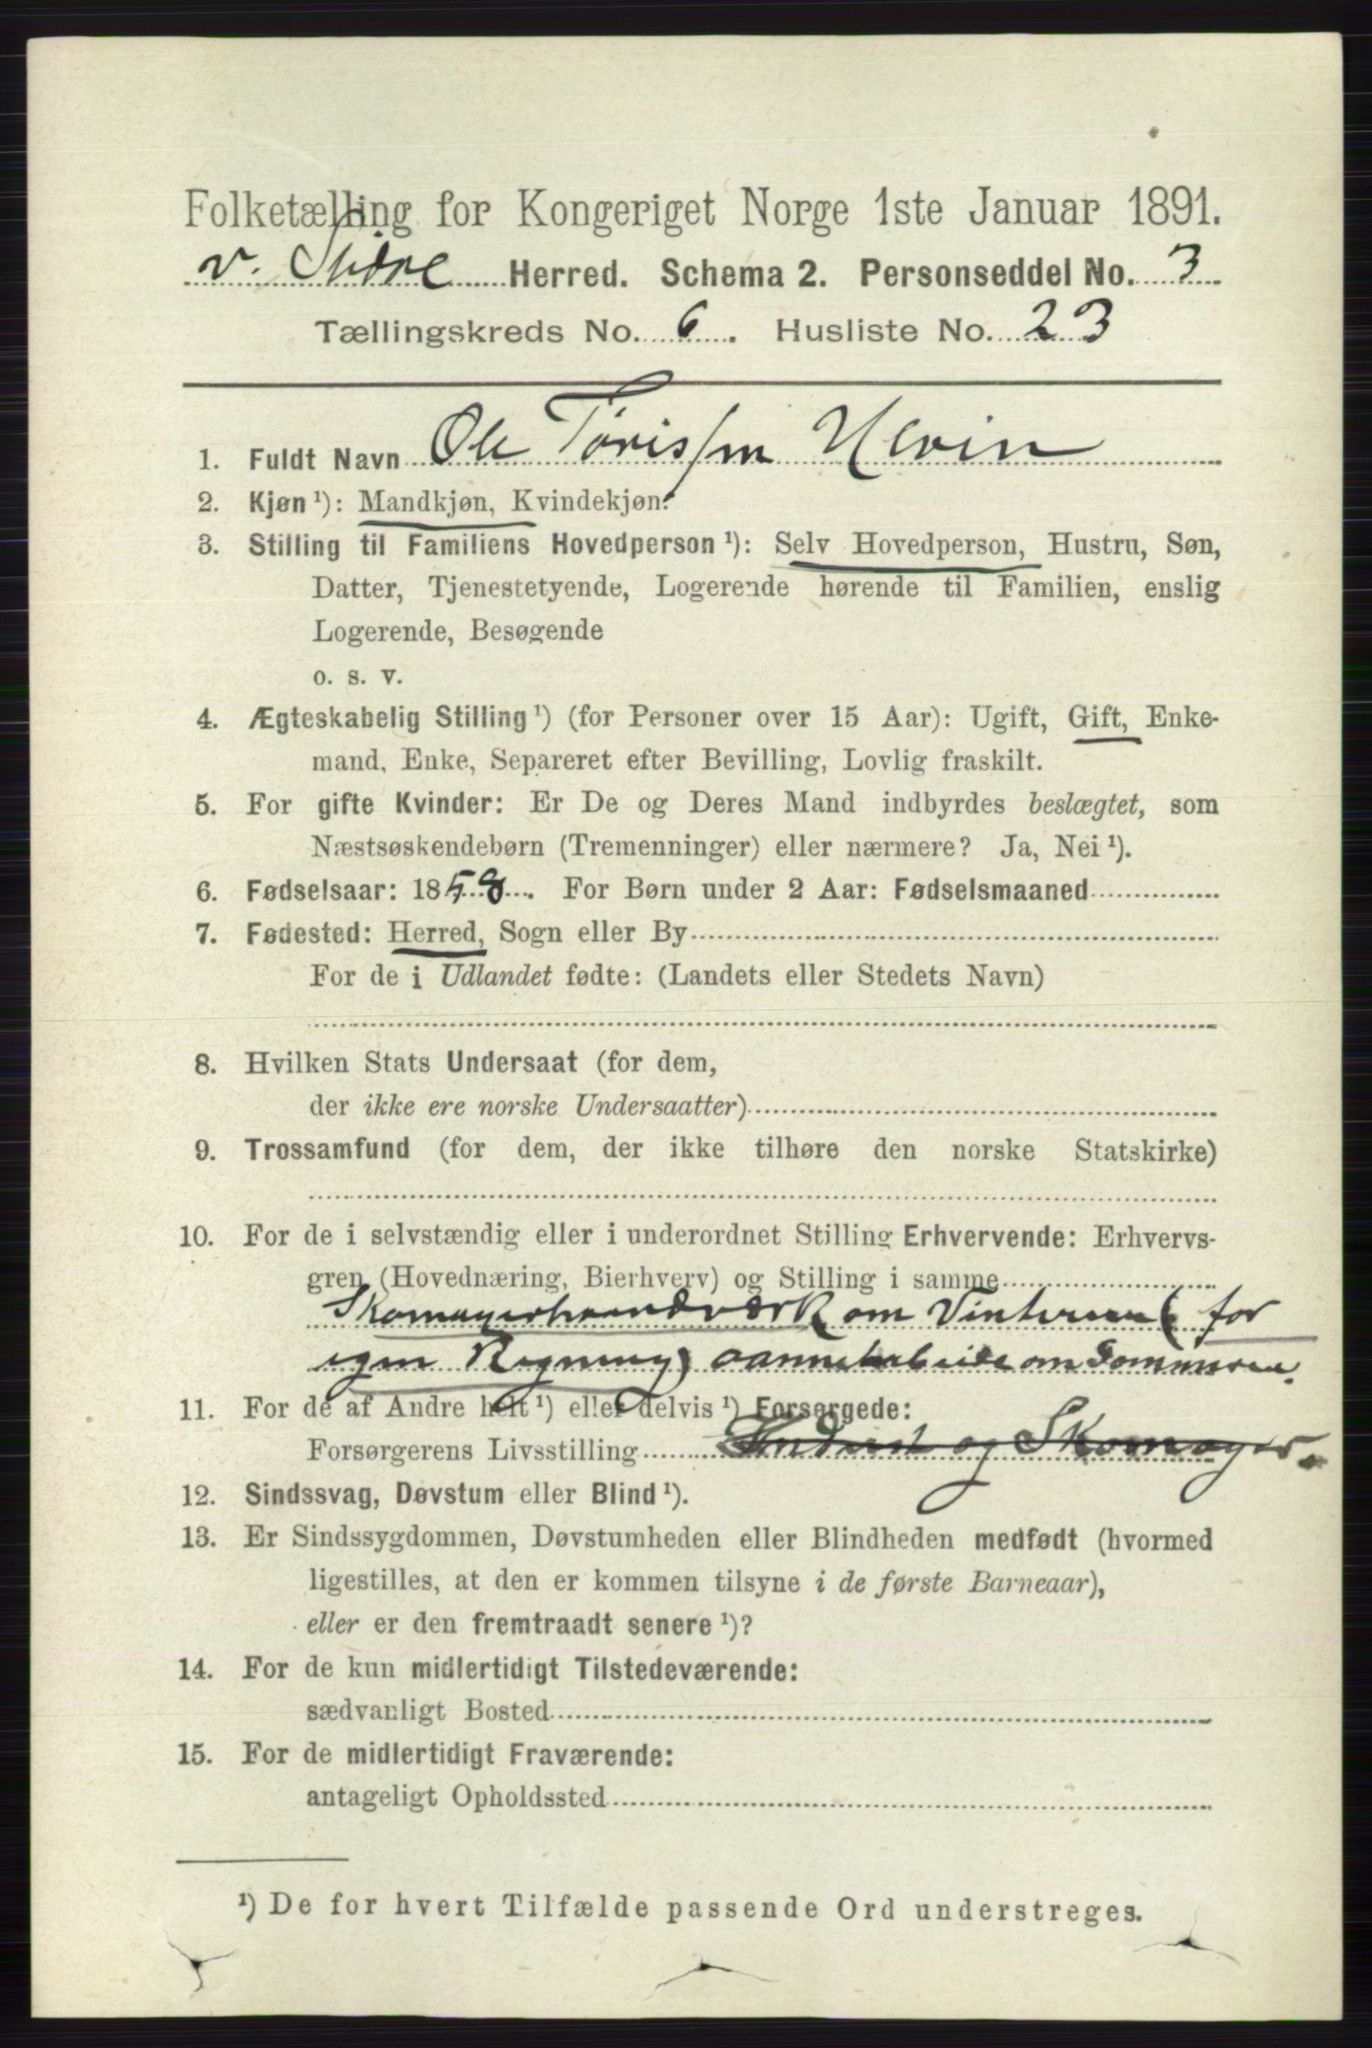 Folketælling for Kongeriget Norge 1ste Januar 1891.
v. Slidre Herred. Schema 2. Personseddel No. 3
Tællingskreds No. 6. Husliste No. 23
1. Fuldt Navn Ole Tørissen
2. Kjøn ¹): Mandkjøn, Kvindekjøn.
3. Stilling til Familiens Hovedperson ¹): Selv Hovedperson, Hustru, Søn,
Datter, Tjenestetyende, Logerende hørende til Familien, enslig
Logerende, Besøgende
o. s. v.
4. Ægteskabelig Stilling ¹) (for Personer over 15 Aar): Ugift, Gift, Enke-
mand, Enke, Separeret efter Bevilling, Lovlig fraskilt.
5. For gifte Kvinder: Er De og Deres Mand indbyrdes beslægtet, som
Næstsøskendebørn (Tremenninger) eller nærmere? Ja, Nei ¹).
6. Fødselsaar: 1858. For Børn under 2 Aar: Fødselsmaaned
7. Fødested: Herred, Sogn eller By
For de i Udlandet fødte: (Landets eller Stedets Navn)
8. Hvilken Stats Undersaat (for dem,
der ikke ere norske Undersaatter)
9. Trossamfund (for dem, der ikke tilhøre den norske Statskirke)
10. For de i selvstændig eller i underordnet Stilling Erhvervende: Erhvervs-
gren (Hovednæring, Bierhverv) og Stilling i samme
Skomagerhaandværk om Vinteren (for
egen Regning) om Sommeren.
11. For de af Andre helt ¹) eller delvis ¹) Forsørgede:
Forsørgerens Livsstilling Inderst og Skomager.
12. Sindssvag, Døvstum eller Blind ¹).
13. Er Sindssygdommen, Døvstumheden eller Blindheden medfødt (hvormed
ligestilles, at den er kommen tilsyne i de første Barneaar),
eller er den fremtraadt senere ¹)?
14. For de kun midlertidigt Tilstedeværende:
sædvanligt Bosted
15. For de midlertidigt Fraværende:
antageligt Opholdssted
¹) De for hvert Tilfælde passende Ord understreges.